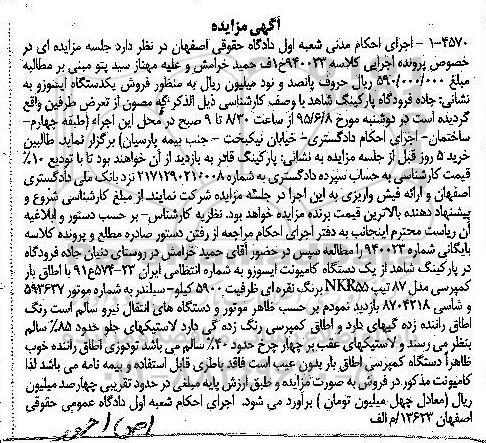 آگهی مزایده
۱-۴۵۷۰ - اجرای احکام مدنی شعبه اول دادگاه حقوقی اصفهان در نظر دارد جلسه مزایده ای در
خصوص پرونده اجرایی کلاسه ۹۴۰۰۲۳ج۱ف حمید خرامش و علیه مهناز سید پتو مبنی بر مطالبه
مبلغ ۵۹۰/۰۰۰/۰۰۰ ریال حروف پانصد و نود میلیون ریال به منظور فروش یکدستگاه ایسوزو به
نشانی: جاده فرودگاه پارکینگ شاهد با وصف کارشناسی ذیل الذکر که مصون از تعرض طرفین واقع
گردیده است در روز دوشنبه مورخ ۹۵/۶/۸ از ساعت ۸/۳۰ تا ۹ صبح در محل این اجراء (طبقه چهارم-
ساختمان- اجرای احکام دادگستری- خیابان نیکبخت - جنب بیمه پارسیان) برگزار نماید. طالبین
خرید ۵ روز قبل از جلسه مزایده به نشانی: پارکینگ قادر به بازدید از آن خواهند بود تا با تودیع ۱۰٪
قیمت کارشناسی به حساب سپرده دادگستری به شماره ۲۱۷۱۲۹۰۲۱۶۰۰۸ نزد بانک ملی دادگستری
اصفهان و ارائه فیش واریزی به این اجرا در جلسه مزایده شرکت نمایند. از مبلغ کارشناسی شروع و
پیشنهاد دهنده بالاترین قیمت برنده مزایده خواهد بود. نظریه کارشناس- بر حسب دستور و ابلاغیه
آن ریاست محترم اینجانب به دفتر اجرای احکام مراجعه از رفتن دستور صادره مطلع و پرونده کلاسه
بایگانی شماره ۹۴۰۰۲۳ را مطالعه سپس در حضور آقای حمید خرامش در روستای دنیان جاده فرودگاه
در پارکینگ شاهد از یک دستگاه کامیونت ایسوزو به شماره انتظامی ایران ۲۳-۵۷۴ع۹۱ با اطاق بار
کمپرسی مدل ۸۷ تیپ NKR۵۵ برنگ نقره ای ظرفیت ۵۹۰۰ کیلو- سیلندر به شماره موتور ۵۹۳۶۳۷
و شاسی ۸۷۰۴۲۱۸ بازدید نمودم بر حسب ظاهر موتور و دستگاه های انتقال نیرو سالم است رنگ
اطاق راننده زده گیهای دارد و اطاق کمپرسی رنگ زده گی دارد لاستیکهای جلو حدود ۸۵٪ سالم
بنظر می رسند و لاستیکهای عقب بر چهار چرخ حدود ۴۰٪ سالم می باشد تودوزی اطاق راننده خوب
ظاهراً دستگاه کمپرسی اطاق بار بدون عیب است فاقد باطری قابل استفاده و بیمه نامه می باشد لذا
کامیونت مذکور در فروش به صورت مزایده و طبق ارزش پایه مبلغ در حدود تقریبی چهارصد میلیون
ریال (معادل چهل میلیون تومان) برآورد می شود. اجرای احکام شعبه اول دادگاه عمومی حقوقی
اصفهان ۱۲۶۲۳/م الف